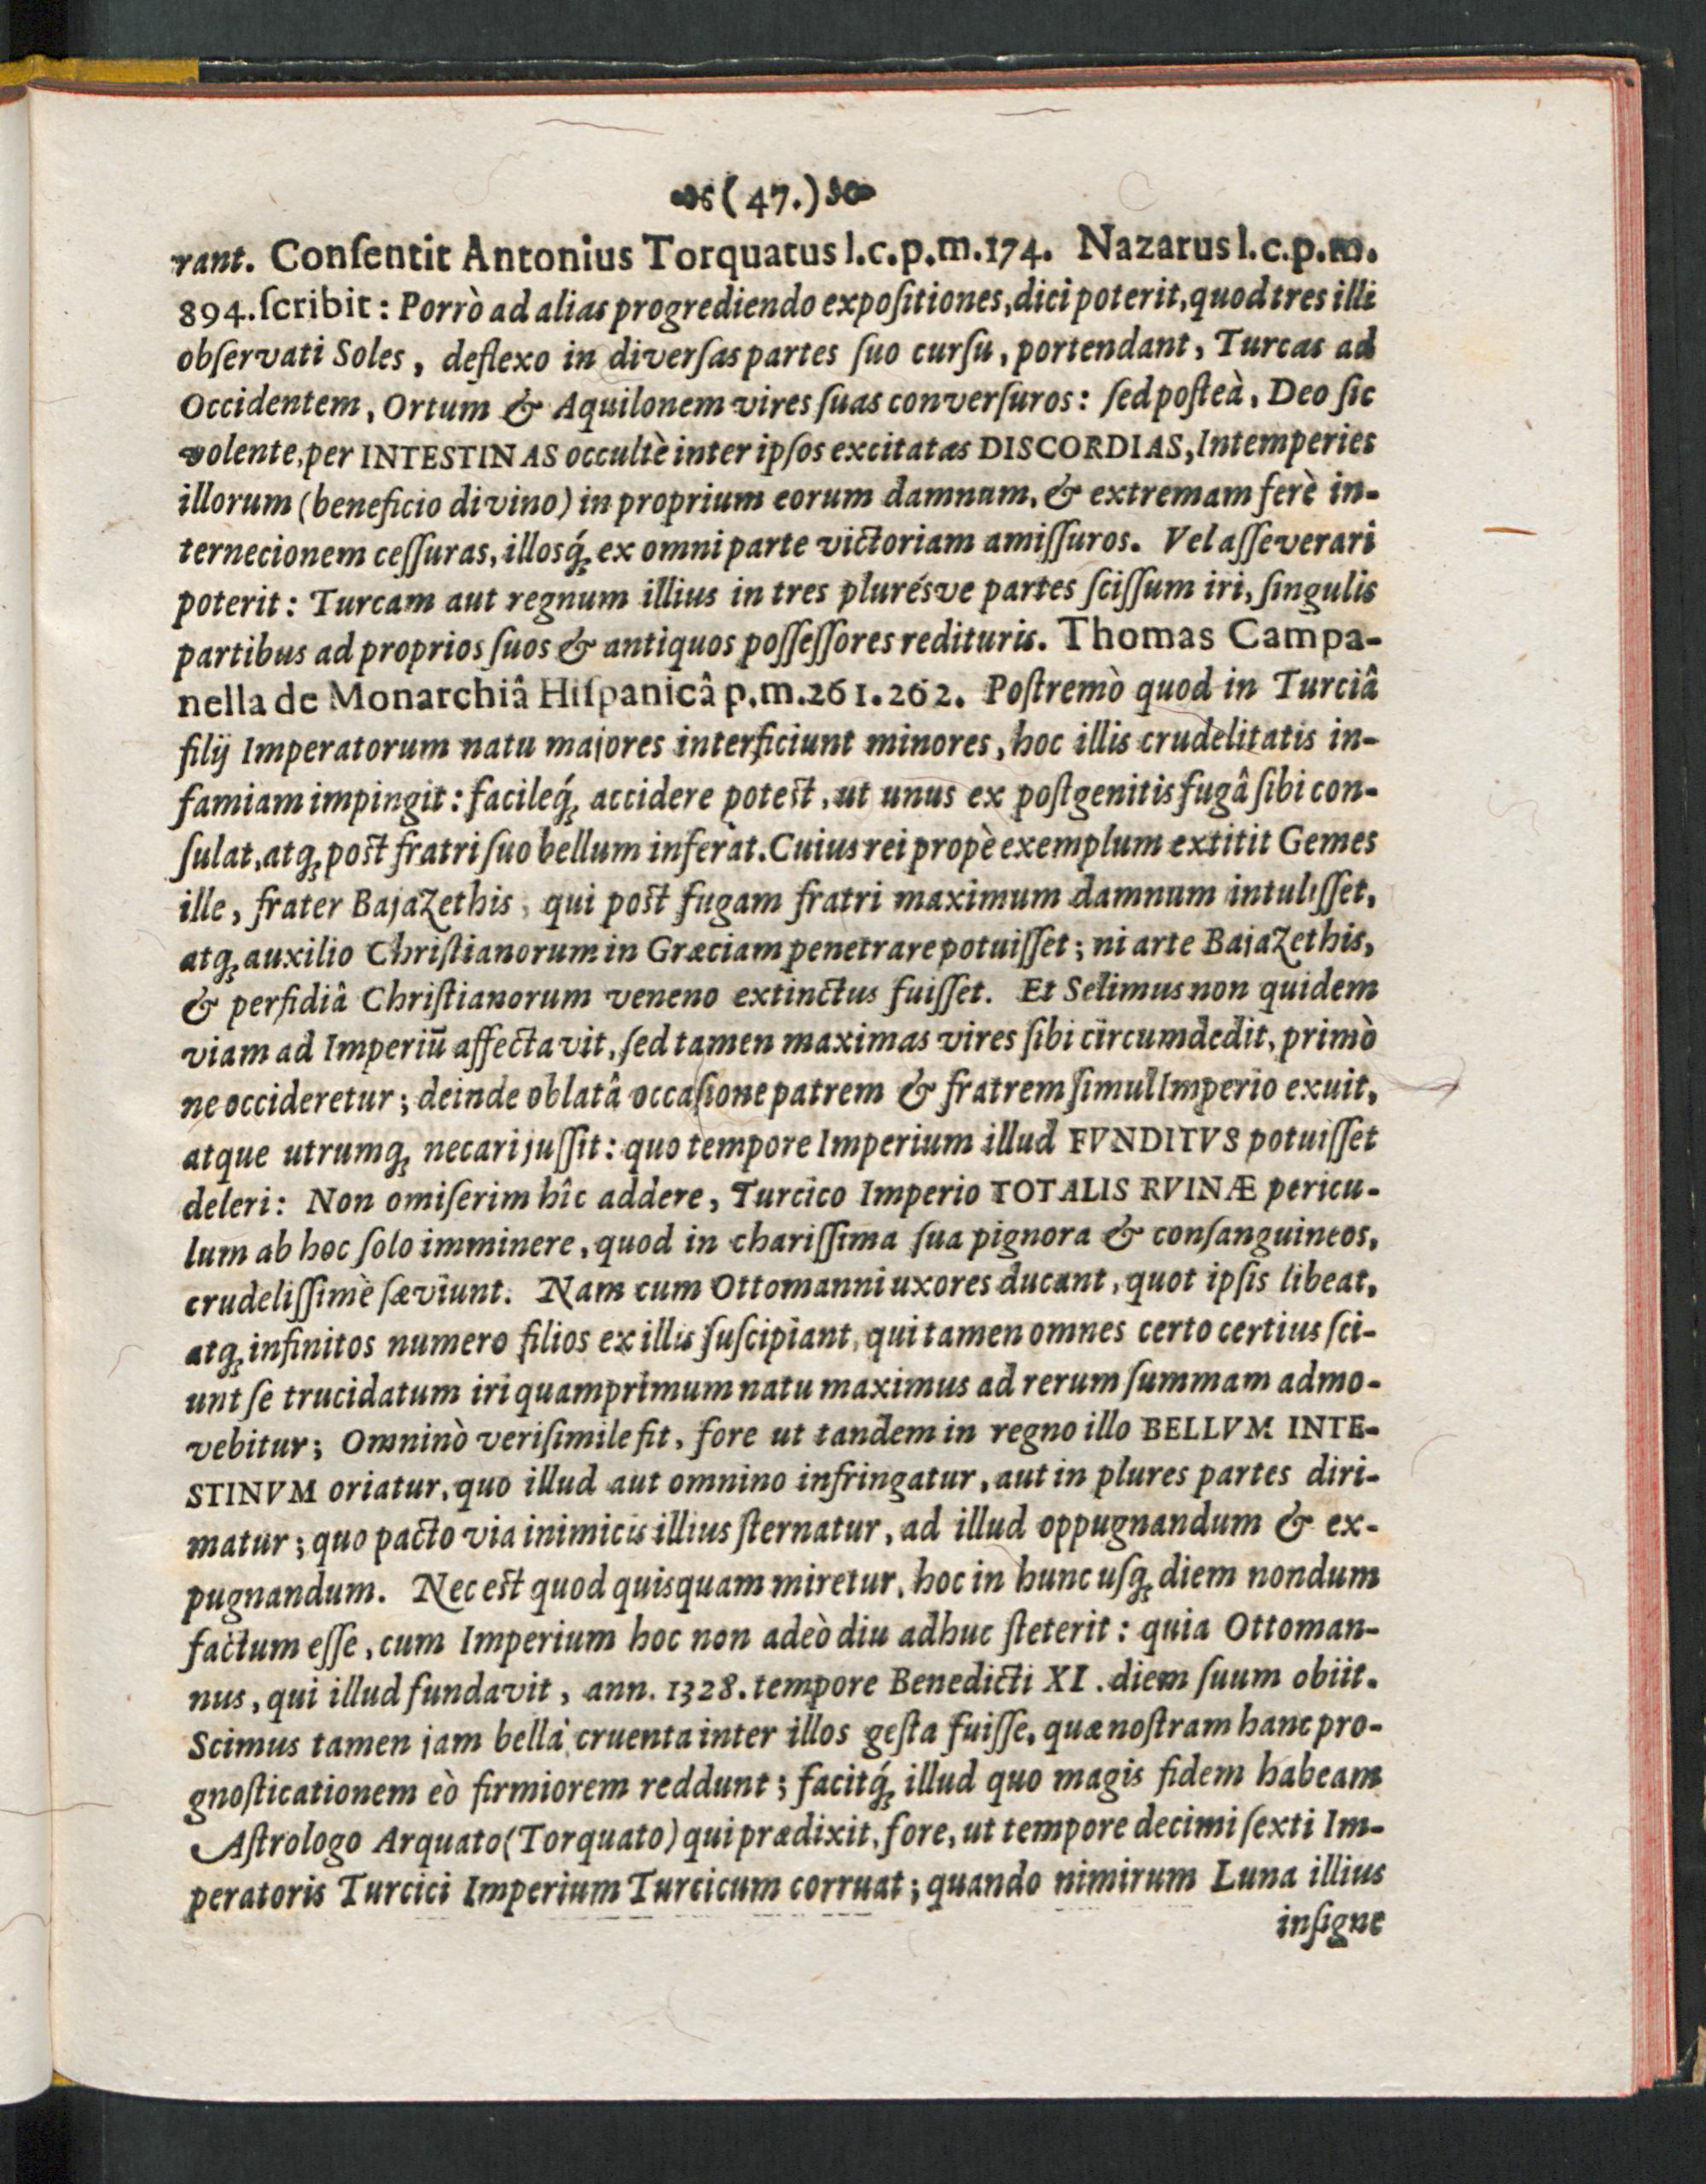 (47.)
rant. Conſentit Antonius Torquatus l.c.p.m.174. Nazarus l.c.p.m.
894.ſcribit: Porrò ad alias progrediendo expoſitiones,dici poterit,quod tres illi
obſervati Soles, deflexo in diverſas partes ſuo curſu, portendant, Turcas ad
Occidentem, Ortum & Aquilonem vires ſuas converſuros: ſed poſteà, Deo ſic
volente,per INTESTINAS occultè inter ipſos excitatas DISCORDIAS,Intemperies
illorum (beneficio divino) in proprium eorum damnum, & extremam ferè in-
ternecionem ceſſuras, illosq́; ex omni parte victoriam amiſſuros. Vel aſſeverari
poterit: Turcam aut regnum illius in tres plurésve partes ſciſſum iri, ſingulis
partibus ad proprios ſuos & antiquos poſſeſſores redituris. Thomas Campa-
nella de Monarchiâ Hiſpanicâ p.m.261.262. Poſtremò quod in Turciâ
filij Imperatorum natu majores interficiunt minores, hoc illis crudelitatis in-
famiam impingit: facileq́; accidere poteſt, ut unus ex poſtgenitis fugâ ſibi con-
ſulat, atq; poſt fratri ſuo bellum inferat. Cuius rei propè exemplum extitit Gemes
ille, frater Bajazethis, qui poſt fugam fratri maximum damnum intuliſſet,
atq; auxilio Chriſtianorum in Græciam penetrare potuiſſet; ni arte Bajazethis,
& perfidiâ Chriſtianorum veneno extinctus fuiſſet. Et Selimus non quidem
viam ad Imperiũ affectavit, ſed tamen maximas vires ſibi circumdedit, primò
ne occideretur; deinde oblatâ occaſione patrem & fratrem ſimul Imperio exuit,
atque utrumq; necari juſſit: quo tempore Imperium illud FVNDITVS potuiſſet
deleri: Non omiſerim hîc addere, Turcico Imperio TOTALIS RVINÆ pericu-
lum ab hoc ſolo imminere, quod in chariſſima ſua pignora & conſanguineos,
crudeliſſimè ſæviunt. Nam cum Ottomanni uxores ducant, quot ipſis libeat,
atq; infinitos numero filios ex illis ſuſcipiant, qui tamen omnes certo certius ſci-
unt ſe trucidatum iri quamprimum natu maximus ad rerum ſummam admo-
vebitur; Omninò veriſimile fit, fore ut tandem in regno illo BELLVM INTE-
STINVM oriatur, quo illud aut omnino infringatur, aut in plures partes diri-
matur; quo pacto via inimicis illius ſternatur, ad illud oppugnandum & ex-
pugnandum. Nec eſt quod quisquam miretur, hoc in hunc uſq; diem nondum
factum eſſe, cum Imperium hoc non adeò diu adhuc ſteterit: quia Ottoman-
nus, qui illud fundavit, ann. 1328. tempore Benedicti XI. diem ſuum obiit.
Scimus tamen jam bella cruenta inter illos geſta fuiſſe, quæ noſtram hanc pro-
gnoſticationem eò firmiorem reddunt; facitq́; illud quo magis fidem habeam
Aſtrologo Arquato (Torquato) qui prædixit, fore, ut tempore decimi ſexti Im-
peratoris Turcici Imperium Turcicum corruat; quando nimirum Luna illius
inſigne